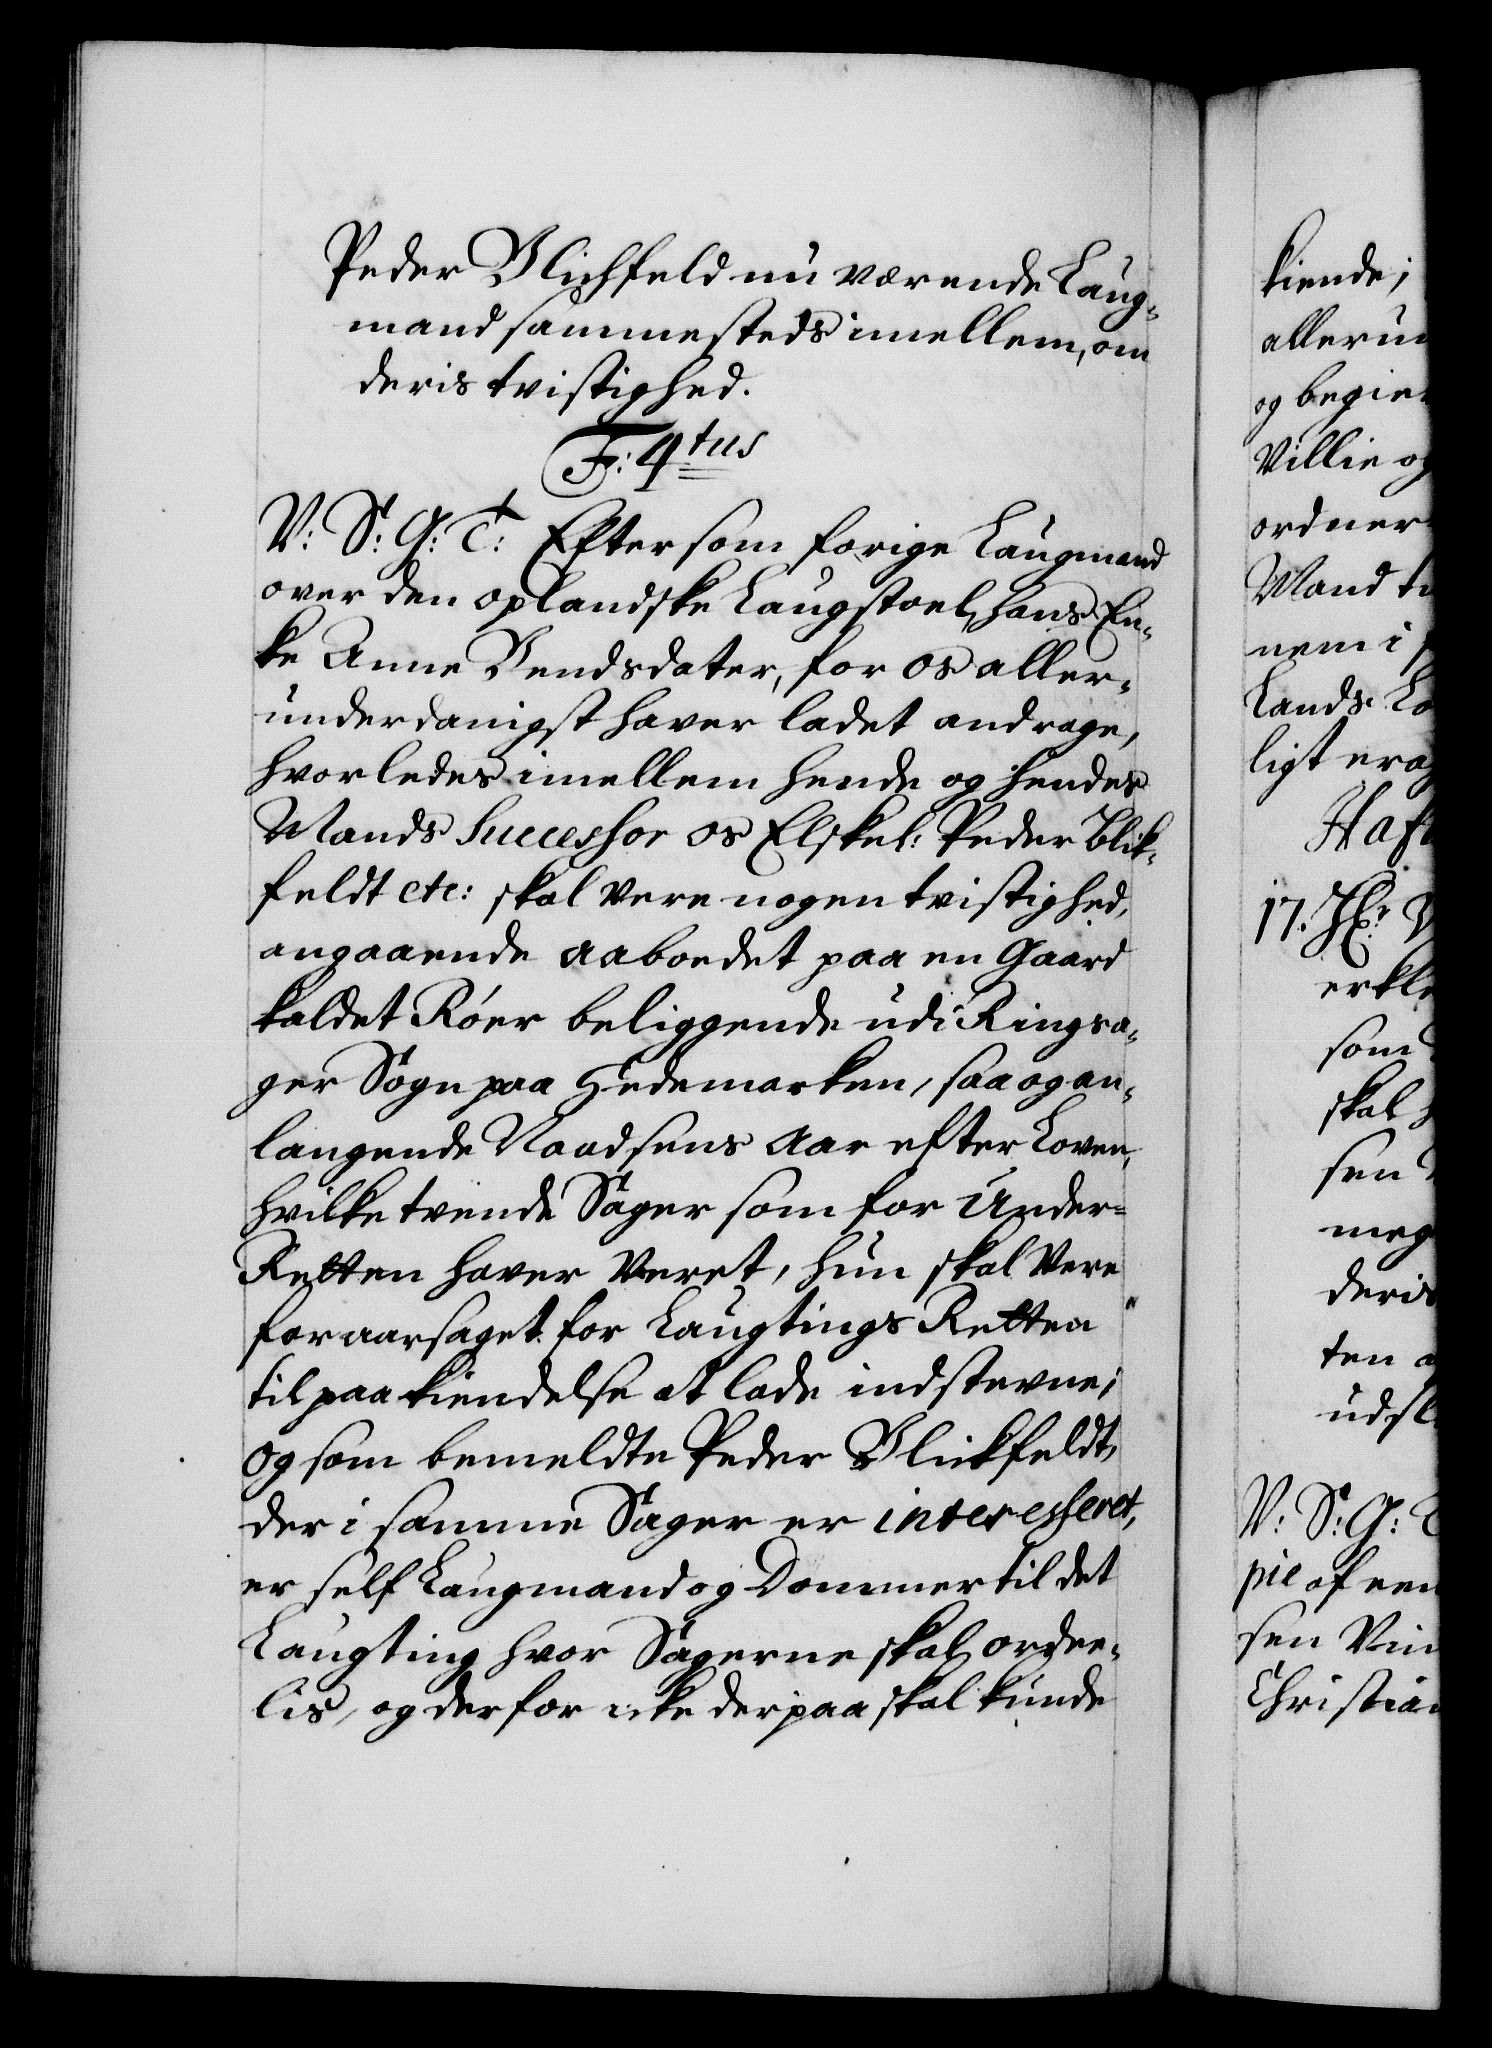 Peder Blichfeld nu værende Laug-
mand sammesteds imellem, om
deris tvistighed.
F: 4tus
V: S: G: T: Eftersom forige Laugmand
over den oplandske Laugstoel, hans En-
ke Anne Bendsdater, for os aller-
underdanigst haver ladet andrage,
hvorledes imellem hende og hendes
Mands Successor os Elskel: Peder Blik-
feldt etc: skal vere nogen tvistighed,
angaaende aaboedet paa en Gaard
kaldet Róer beliggende udi Ringsa-
ger Sogn paa Hedemarken, saa og an-
langende Naadsens Aar efter Loven,
hvilke tvende Sager som for Under-
Retten haver Veret, hun skal Vere
foraarsaget for Laugtings Retten
til paakiendelse at lade indstevne;
og som bemeldte Peder Blickfeldt,
der i samme Sager er interesseret,
er self Laugmand og Dommer til det
Laugting hvor Sagerne skal ordee-
lis, og derfor icke derpaa skal kunde
kiende;
allerun
og begier
Villie og
ordner
Mand ti
nem i
Lands Lo
ligt erag
Hafn
17. Hr V
erkle
som
skal
sen
meg
deris
ten a
udsl
V: S: G: T
pie af een
sen Vin
Christian